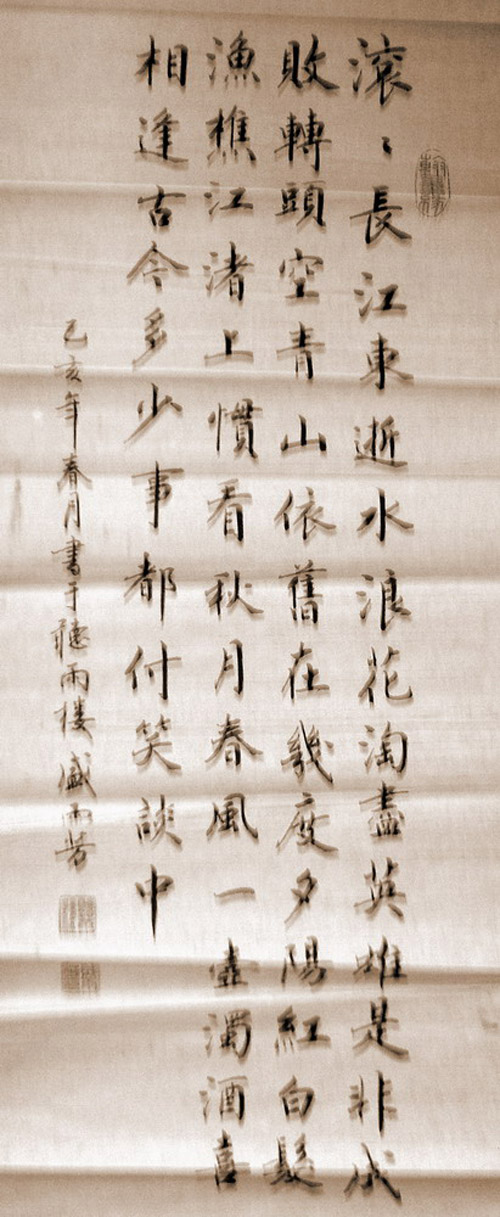 滾〻長江東逝水浪花淘盡英雄是非成
敗轉頭空青山依舊在幾度夕陽紅白髮
漁樵江渚上慣看秋月春風一壺濁酒喜
相逢古今多少事都付笑談中
己亥年春月書于聽雨楼 盛雨芳